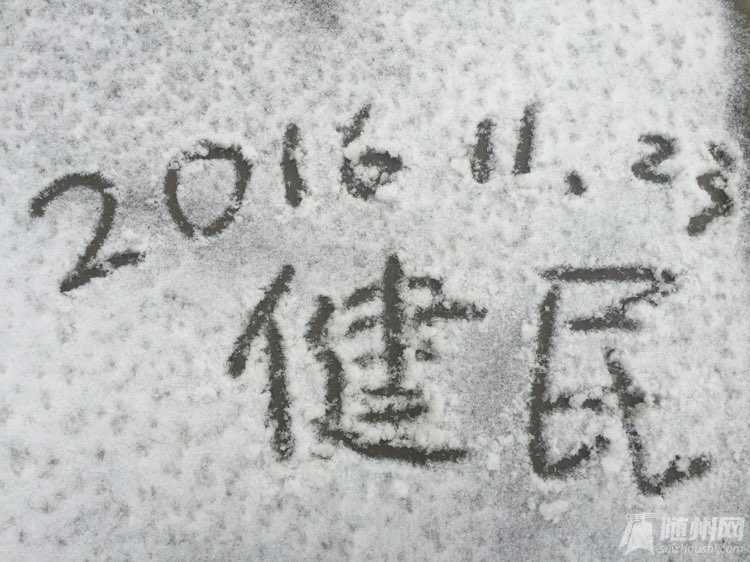 2016 11.23
健民
随州网
suizhoushi.com